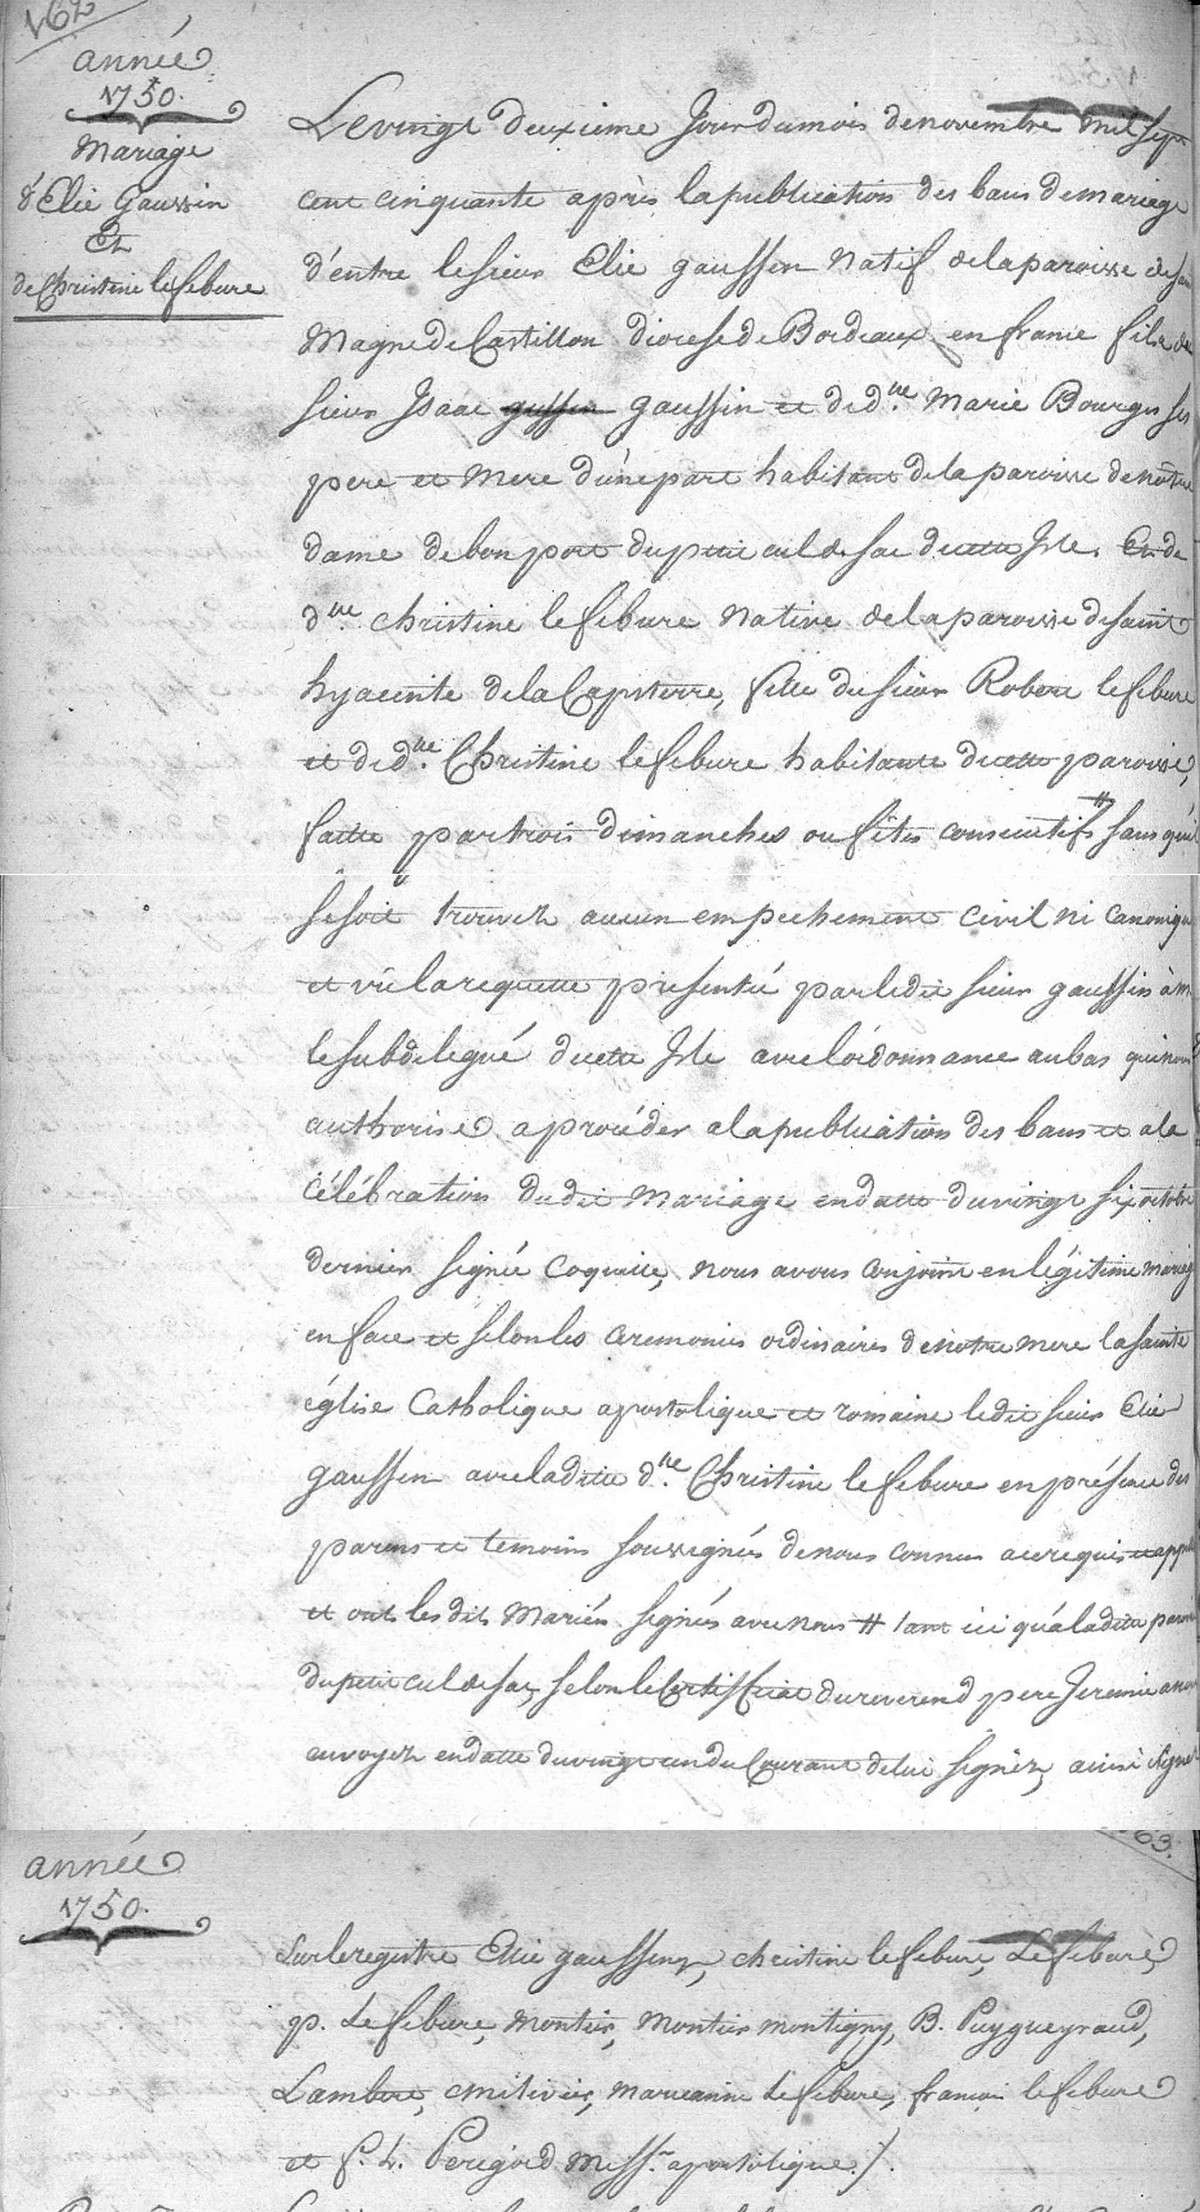 162
année
1750.
Mariage
d'Elie Gaussin
Et
de Christine lefebure
Le vingt deuxieme Jour du mois de novembre mil sept
cent cinquante après la publication des bans de mariage
d'entre le sieur Elie gaussen natif de la paroisse de saint
Magne de Castillon diocese de Bordeaux en france fils de
sieur Isaac gussen gaussin et de d.ne Marie Bourges ses
pere et mere d'une part habitant de la paroisse de nôtre
dame de bon port du petit cul de sac de cette Isle. Et de
d.ne christine lefebure native de la paroisse de saint
hyacinte de la Capsterre, fille du sieur Robert lefebure
et de d.ne Christine lefebure habitante de cette paroisse,
faitte par trois dimanches ou fêtes consecutifs # sans qu'il
se soit trouvez aucun empechement civil ni canonique
et vû la requette presenté par ledit sieur gaussin à mr
le subdelegué de cette Isle avec l'ordonnance au bas qui nous
authorise a procéder a la publication des bans et a la
célébration dudit mariage en datte du vingt six octobre
dernier signée Coquille, nous avons conjoint en légitime mariage
en face et selon les ceremonies ordinaires de notre mere la sainte
église Catholique apostolique et romaine ledit sieur Elie
gaussen avec ladite d.ne Christine lefebure en présence des
parens et temoins soussignés de nous connus a ce requis et appellés
et ont les dits Mariés signés avec nous # tant ici qu'à ladite paroisse
du petit cul de sac, selon le Certificat du reverend pere Jeremie a nous
envoyez en datte du vingt un du Courant de lui signéz, ainsi signé
63.
année
1750.
sur le registre Elie gaussens, christine lefebure, Lefebure,
p. Lefebure, Montier, Montier montigny, B. Puygueyraud,
Lambert, cmitivier, marieanne Lefebure, francois lefebure
et f. L. Perigord miss.r apostolique./.